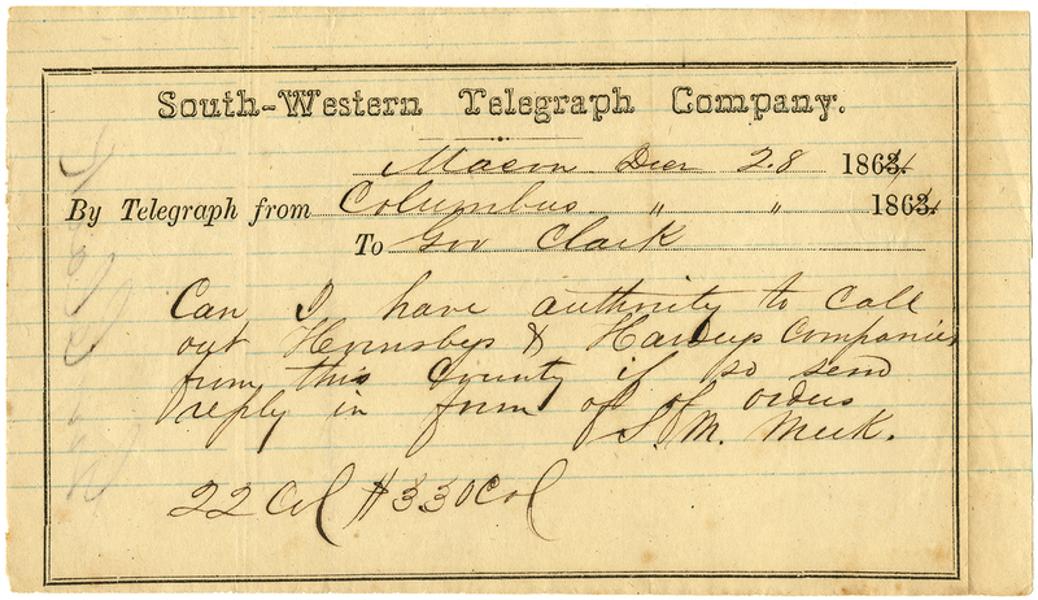 South-Western Telegraph Company.
Macon Decr 28 1864.
By Telegraph from Columbus " " 1864.
To Gov Clark
Can I have authority to call
out Hornsbys & Companies
from this County if so send
reply in form of of orders
S. M. Meek.
22 Col $330 Col